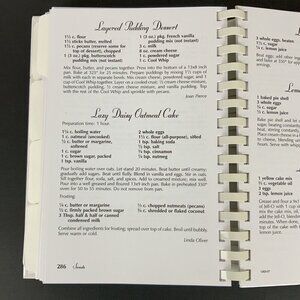 Layered Pudding Dessert
1½ c. flour
1½ sticks butter, melted
1½ c. pecans (reserve some for top of dessert), chopped
1 (3 oz.) pkg. butterscotch pudding mix (not instant)
1 (3 oz.) pkg. French vanilla pudding mix (not instant)
3 c. milk
8 oz. cream cheese
1 c. powdered sugar
1 Cool Whip
Mix flour, butter, and pecans together. Press into bottom of a 13x9 inch
pan. Bake at 325° for 25 minutes. Prepare pudding by mixing 1½ cups of
milk with each in separate bowls. Mix cream cheese, powdered sugar, and 1
c. of Cool Whip together. Layer on cooled crust: cream cheese mixture,
butterscotch pudding mixture, cream cheese mixture, and vanilla pudding. Top
with the rest of the Cool Whip and chopped pecans.
Joan Pierce
Lazy Daisy Oatmeal Cake
Preparation time: 1 hour
1¼ c. boiling water
1 c. oatmeal (uncooked)
½ c. butter or margarine, softened
1 c. sugar
1 c. brown sugar, packed
1 tsp. vanilla
2 whole eggs
1½ c. flour (all-purpose), sifted
1 tsp. baking soda
½ tsp. salt
¾ tsp. cinnamon
¼ tsp. nutmeg
Pour boiling water over oats. Let stand 20 minutes. Beat butter until creamy;
gradually add sugars and beat until fluffy. Blend in vanilla and eggs. Stir in oats.
Sift together flour, soda, salt, and spices. Add to creamed mixture; mix well.
Pour into a well greased and floured 13x9 inch pan. Bake in preheated 350°
oven for 50 to 55 minutes. Do not remove from pan.
Frosting:
¼ c. butter or margarine
½ c. firmly packed brown sugar
3 Tbsp. half & half or canned condensed milk
⅓ c. chopped nutmeats (pecans)
¾ c. shredded or flaked coconut
Combine all ingredients for frosting; spread over top of cake. Broil until bubbly.
Serve warm or cold.
Linda Oliver
286
Sweets
3 whole eggs, beaten
¼ c. lemon juice
1 baked pie shell
3 whole eggs
1 c. sugar
1 yellow cake mix
½ c. vegetable oil
1 c. water